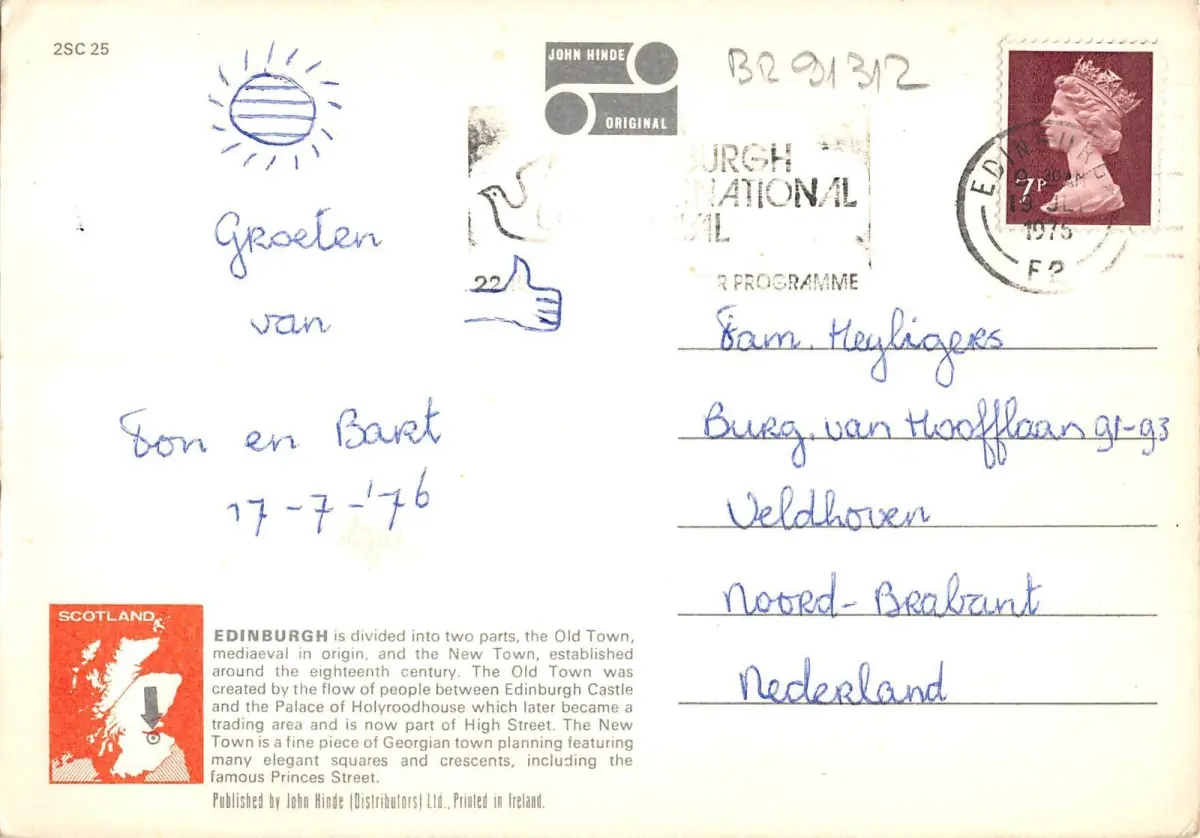 2SC 25
JOHN HINDE
ORIGINAL
BR 91312
URGH
NATIONAL
AL
22
R PROGRAMME
EDINBURG
7P
19 JL
1976
Groeten
van
Ton en Bart
17-7-'76
Fam. Heyligers
Burg. van Hoofflaan 91-93
Veldhoven
Noord-Brabant
Nederland
SCOTLAND
EDINBURGH is divided into two parts, the Old Town,
mediaeval in origin, and the New Town, established
around the eighteenth century. The Old Town was
created by the flow of people between Edinburgh Castle
and the Palace of Holyroodhouse which later became a
trading area and is now part of High Street. The New
Town is a fine piece of Georgian town planning featuring
many elegant squares and crescents, including the
famous Princes Street.
Published by John Hinde (Distributors) Ltd., Printed in Ireland.